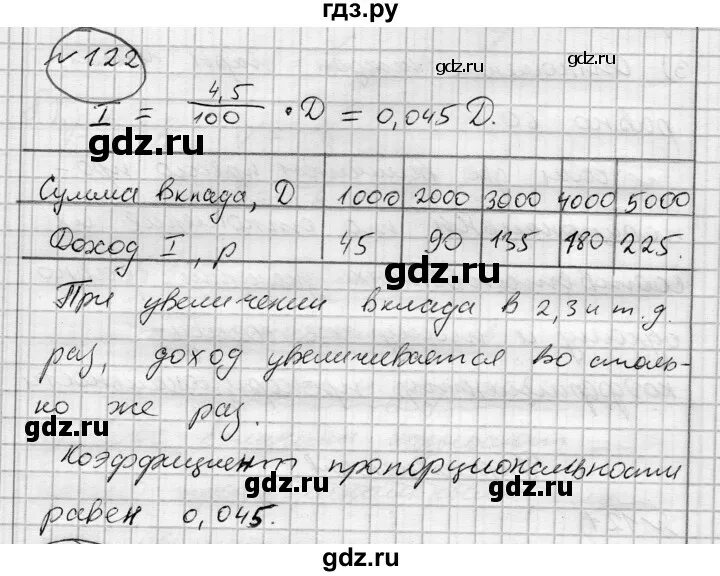 гдз.ру
№ 122
gdz.ru
gdz.ru
I = 4,5/100 · D = 0,045 D.
gdz.ru
Сумма вклада, D 1000 2000 3000 4000 5000
Доход I, р 45 90 135 180 225.
gdz.ru
При увеличении вклада в 2,3 и т.д.
раз, доход увеличивается во столь-
gdz.ru
ко же раз.
gdz.ru
Коэффициент пропорциональности
gdz.ru
равен 0,045.
gdz.ru
gdz.ru